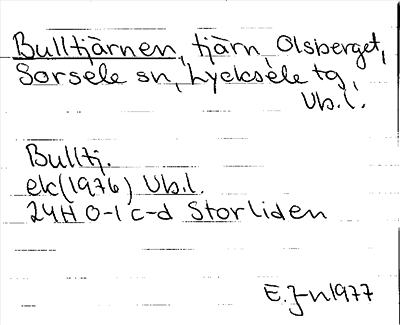 Bulltjärnen, tjärn, Olsberget,
Sorsele sn, Lycksele tg,
Vb.l.
Bulltj.
ek(1976) Vb.l.
24H 0-1 c-d Storliden
E.J-n 1977